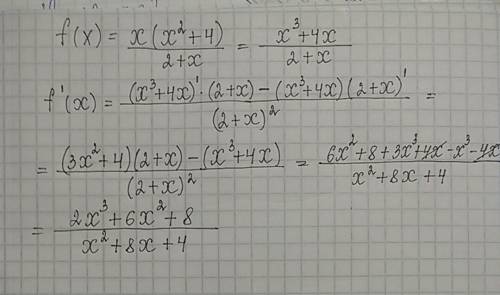 f(x) = x(x²+4)/(2+x) = (x³+4x)/(2+x)
f'(x) = ((x³+4x)'·(2+x)−(x³+4x)(2+x)')/(2+x)² =
= ((3x²+4)(2+x)−(x³+4x))/(2+x)² = (6x²+8+3x³+4x−x³−4x)/(x²+8x+4)
= (2x³+6x²+8)/(x²+8x+4)